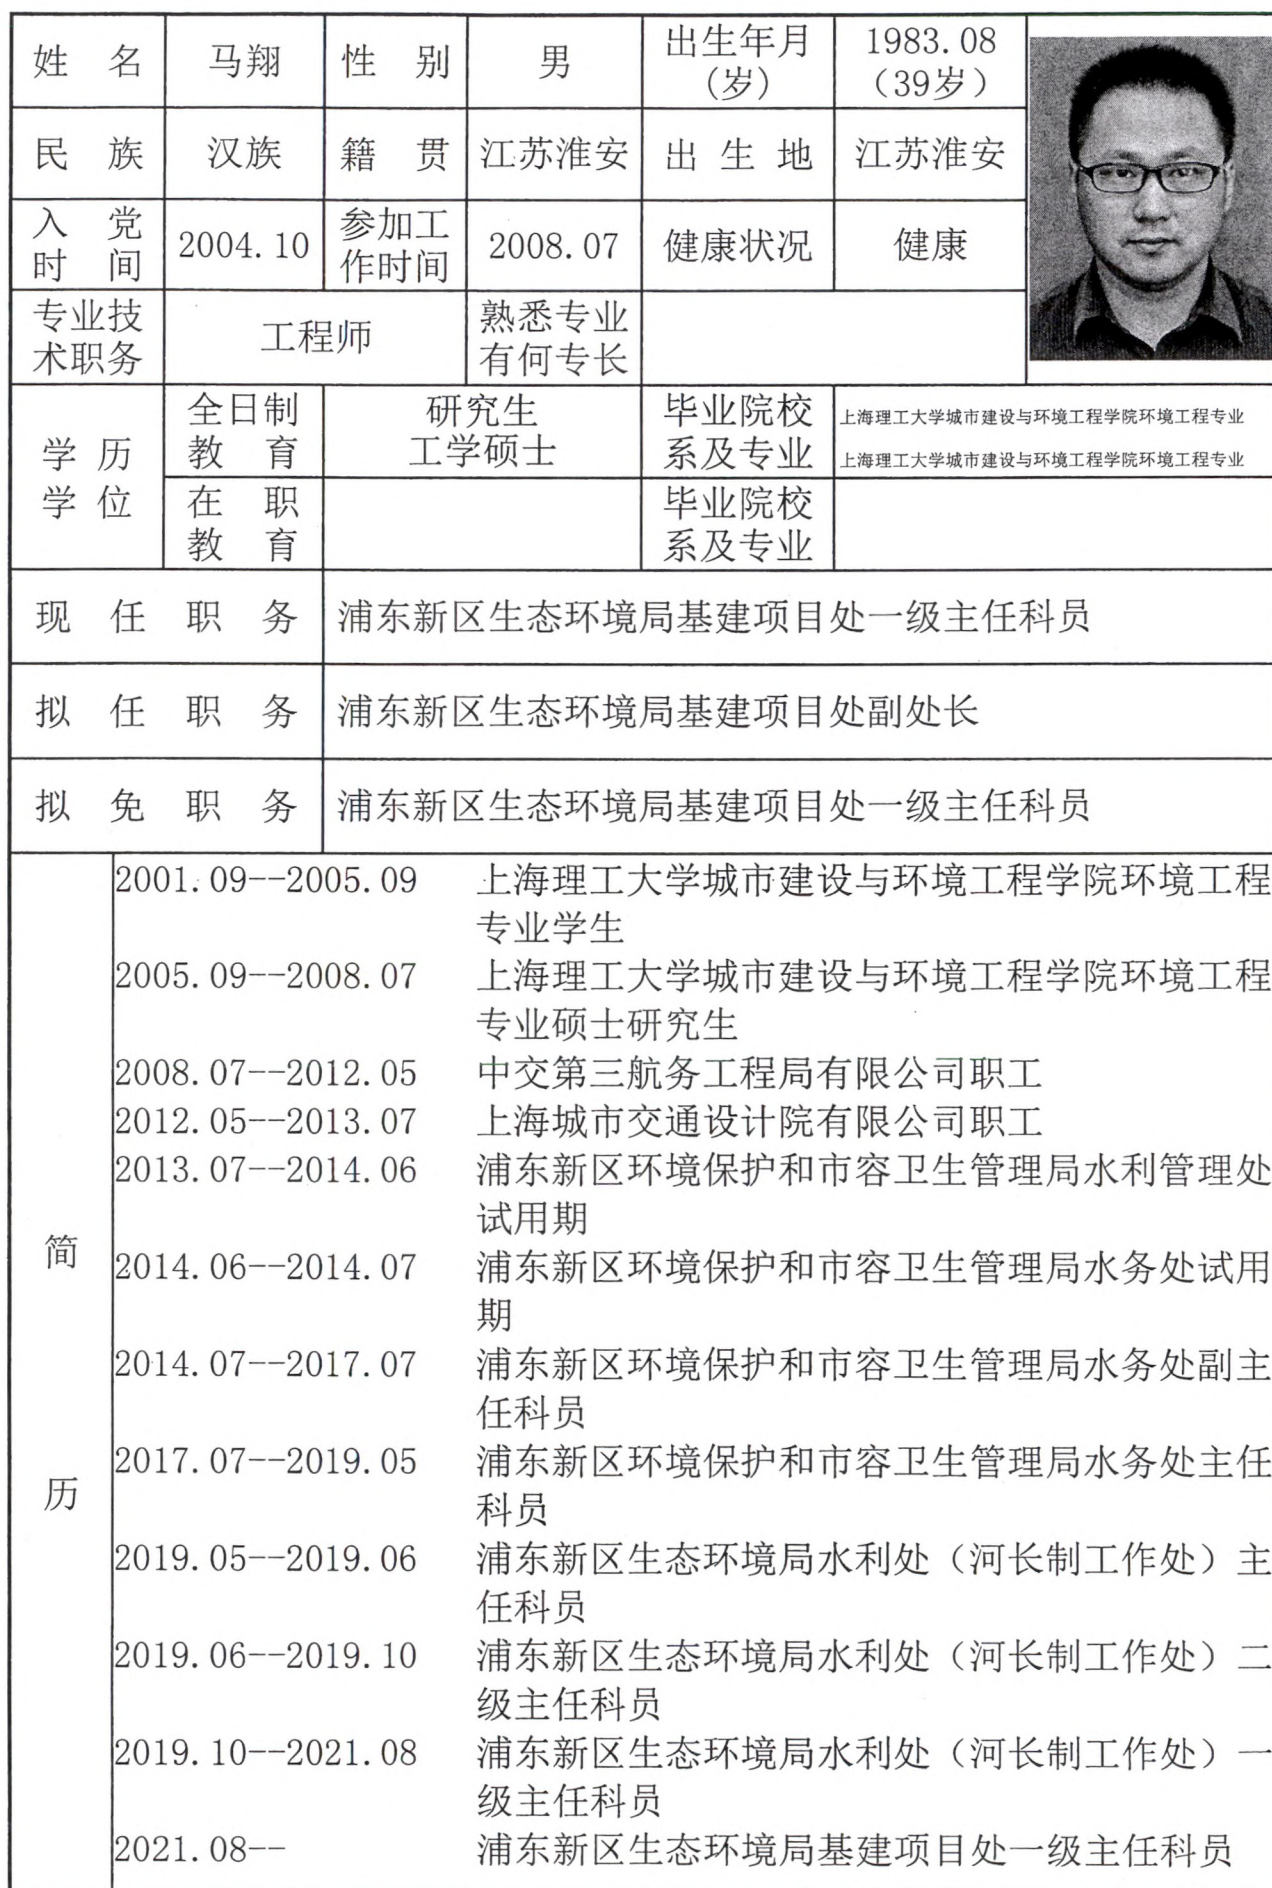 姓 名 马翔 性 别 男 出生年月(岁) 1983.08（39岁）
民 族 汉族 籍 贯 江苏淮安 出 生 地 江苏淮安
入 党 时 间 2004.10 参加工作时间 2008.07 健康状况 健康
专业技术职务 工程师 熟悉专业有何专长
学 历 学 位 全日制教 育 研究生 工学硕士 毕业院校系及专业 上海理工大学城市建设与环境工程学院环境工程专业
上海理工大学城市建设与环境工程学院环境工程专业
在 职 教 育 毕业院校系及专业
现 任 职 务 浦东新区生态环境局基建项目处一级主任科员
拟 任 职 务 浦东新区生态环境局基建项目处副处长
拟 免 职 务 浦东新区生态环境局基建项目处一级主任科员
简 历
2001.09--2005.09 上海理工大学城市建设与环境工程学院环境工程
专业学生
2005.09--2008.07 上海理工大学城市建设与环境工程学院环境工程
专业硕士研究生
2008.07--2012.05 中交第三航务工程局有限公司职工
2012.05--2013.07 上海城市交通设计院有限公司职工
2013.07--2014.06 浦东新区环境保护和市容卫生管理局水利管理处
试用期
2014.06--2014.07 浦东新区环境保护和市容卫生管理局水务处试用
期
2014.07--2017.07 浦东新区环境保护和市容卫生管理局水务处副主
任科员
2017.07--2019.05 浦东新区环境保护和市容卫生管理局水务处主任
科员
2019.05--2019.06 浦东新区生态环境局水利处（河长制工作处）主
任科员
2019.06--2019.10 浦东新区生态环境局水利处（河长制工作处）二
级主任科员
2019.10--2021.08 浦东新区生态环境局水利处（河长制工作处）一
级主任科员
2021.08-- 浦东新区生态环境局基建项目处一级主任科员